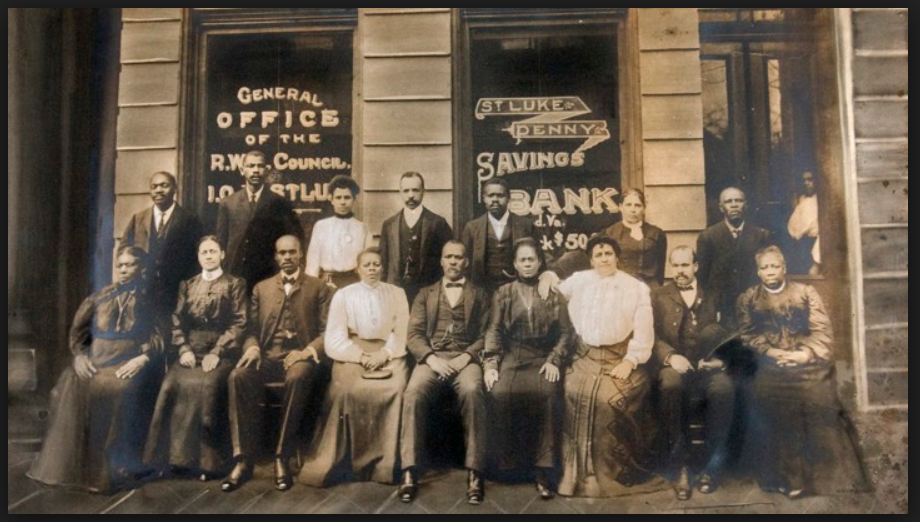 GENERAL
OFFICE
OF THE
R.W. COUNCIL,
I.O. ST LU
ST LUKE
PENNY
SAVINGS
BANK
d.Va.
$50